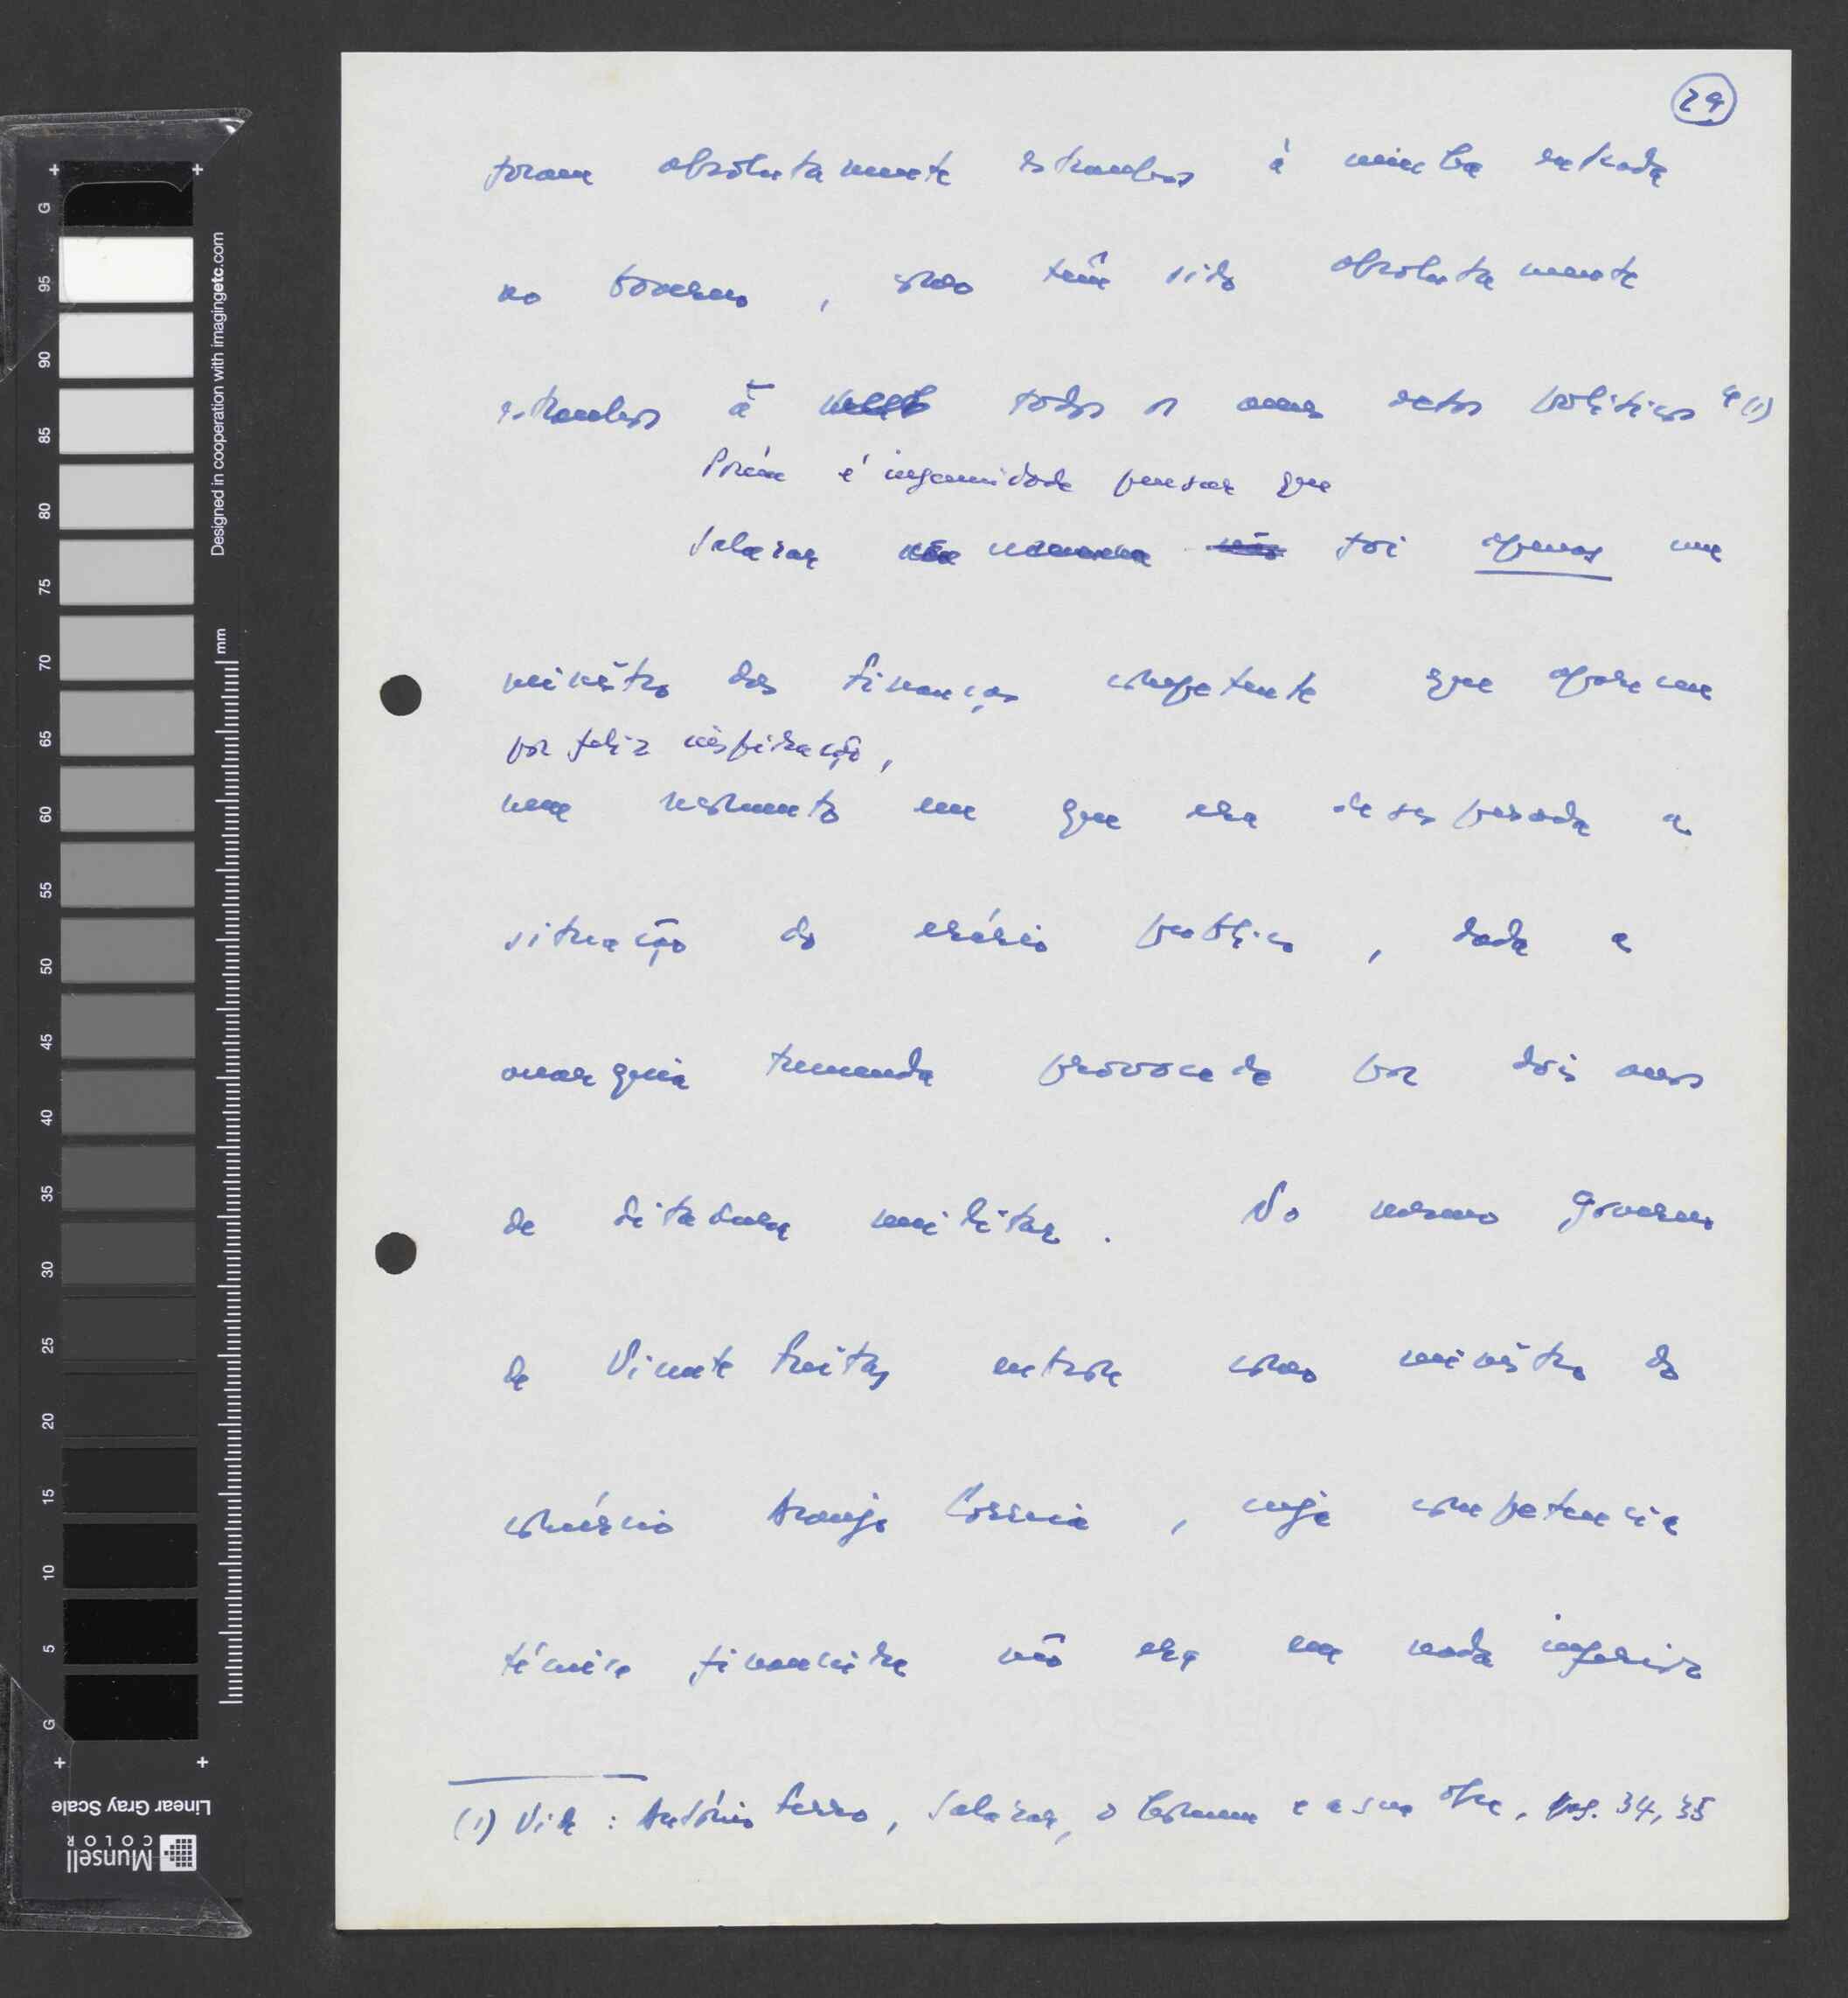 29
foram absolutamente estranhos à minha entrada
no Governo, como têm sido absolutamente
estranhos a todos os meus actos políticos" (1)
Porém é ingenuidade pensar que
Salazar não foi apenas um
ministro das finanças competente que aparece
por feliz inspiração,
num momento em que era desesperada a
situação do erário público, dada a
anarquia tremenda provocada por dois anos
de ditadura militar. No mesmo governo
de Vicente Freitas entrou como ministro do
comércio Araujo Correia, cuja competencia
técnica financeira não era em nada inferior
(1) Vide: António Ferro, Salazar, o homem e a sua obra, pag. 34, 35
Designed in cooperation with imagingetc.com
mm
G 95 90 85 80 75 70 65 60 55 50 45 40 35 30 25 20 15 10 5 G
Linear Gray Scale
Munsell
COLOR